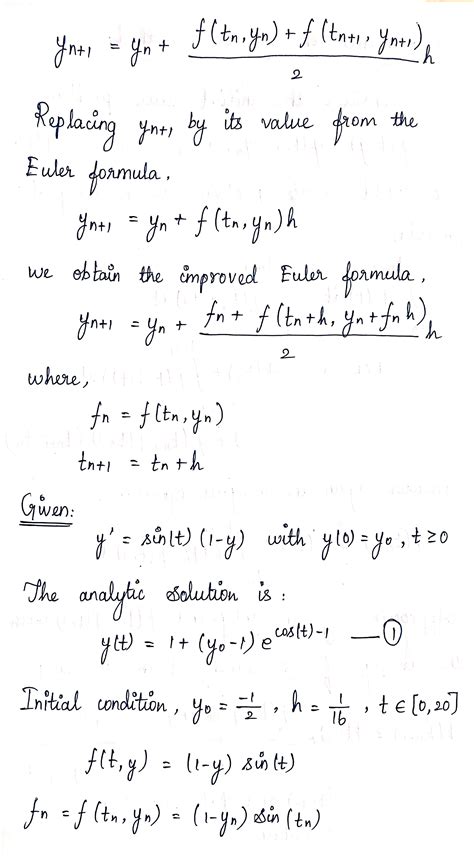 yn+1 = yn + (f(tn,yn) + f(tn+1, yn+1))/2 h
Replacing yn+1 by its value from the
Euler formula,
yn+1 = yn + f(tn,yn)h
we obtain the improved Euler formula,
yn+1 = yn + (fn + f(tn+h, yn+fnh))/2 h
where,
fn = f(tn,yn)
tn+1 = tn+h
Given:
y' = sin(t) (1-y) with y(0)=y0, t≥0
The analytic solution is :
y(t) = 1+(y0-1) e^(cos(t)-1) — ①
Initial condition, y0 = -1/2, h = 1/16, t ∈ [0,20]
f(t,y) = (1-y) sin(t)
fn = f(tn,yn) = (1-yn) sin(tn)